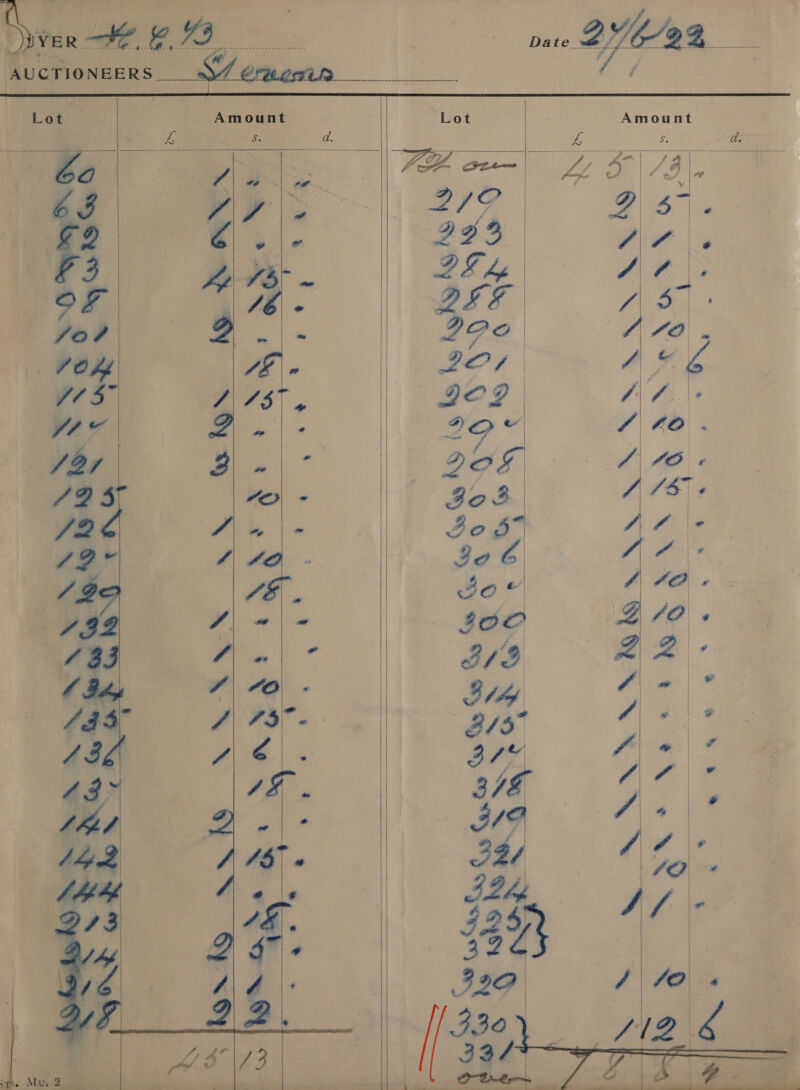 BUYER Date 27/6/22
AUCTIONEERS Stevens
Lot Amount
£ s. d.
60 1 - -
63 1 1 -
82 6 - -
83 4 15 -
98 16 -
101 2 - -
104 18 -
115 1 15 -
117 2 - -
121 3 - -
125 10 -
126 1 - -
127 1 10 -
129 18 -
132 1 - -
133 1 - -
134 1 10 -
135 1 15 -
136 1 6 -
137 18 -
141 2 - -
142 1 15 -
144 1 - -
213 18 -
214 2 5 -
216 1 1 -
218 2 2 -
45 13
Mu. 2
Lot Amount
£ s. d.
45 13 -
219 2 5 -
223 1 1 -
284 1 1 -
288 1 5 -
290 1 10 -
291 1 7 6
292 1 1 -
297 1 10 -
298 1 10 -
303 1 15 -
305 1 1 -
306 1 1 -
307 1 10 -
309 2 10 -
313 2 2 -
314 1 - -
315 1 - -
317 1 - -
318 1 1 -
319 1 - -
321 1 1 -
324 10 -
325 } 1 1 -
326
329 1 10 -
330 } 1 12 6
331
over